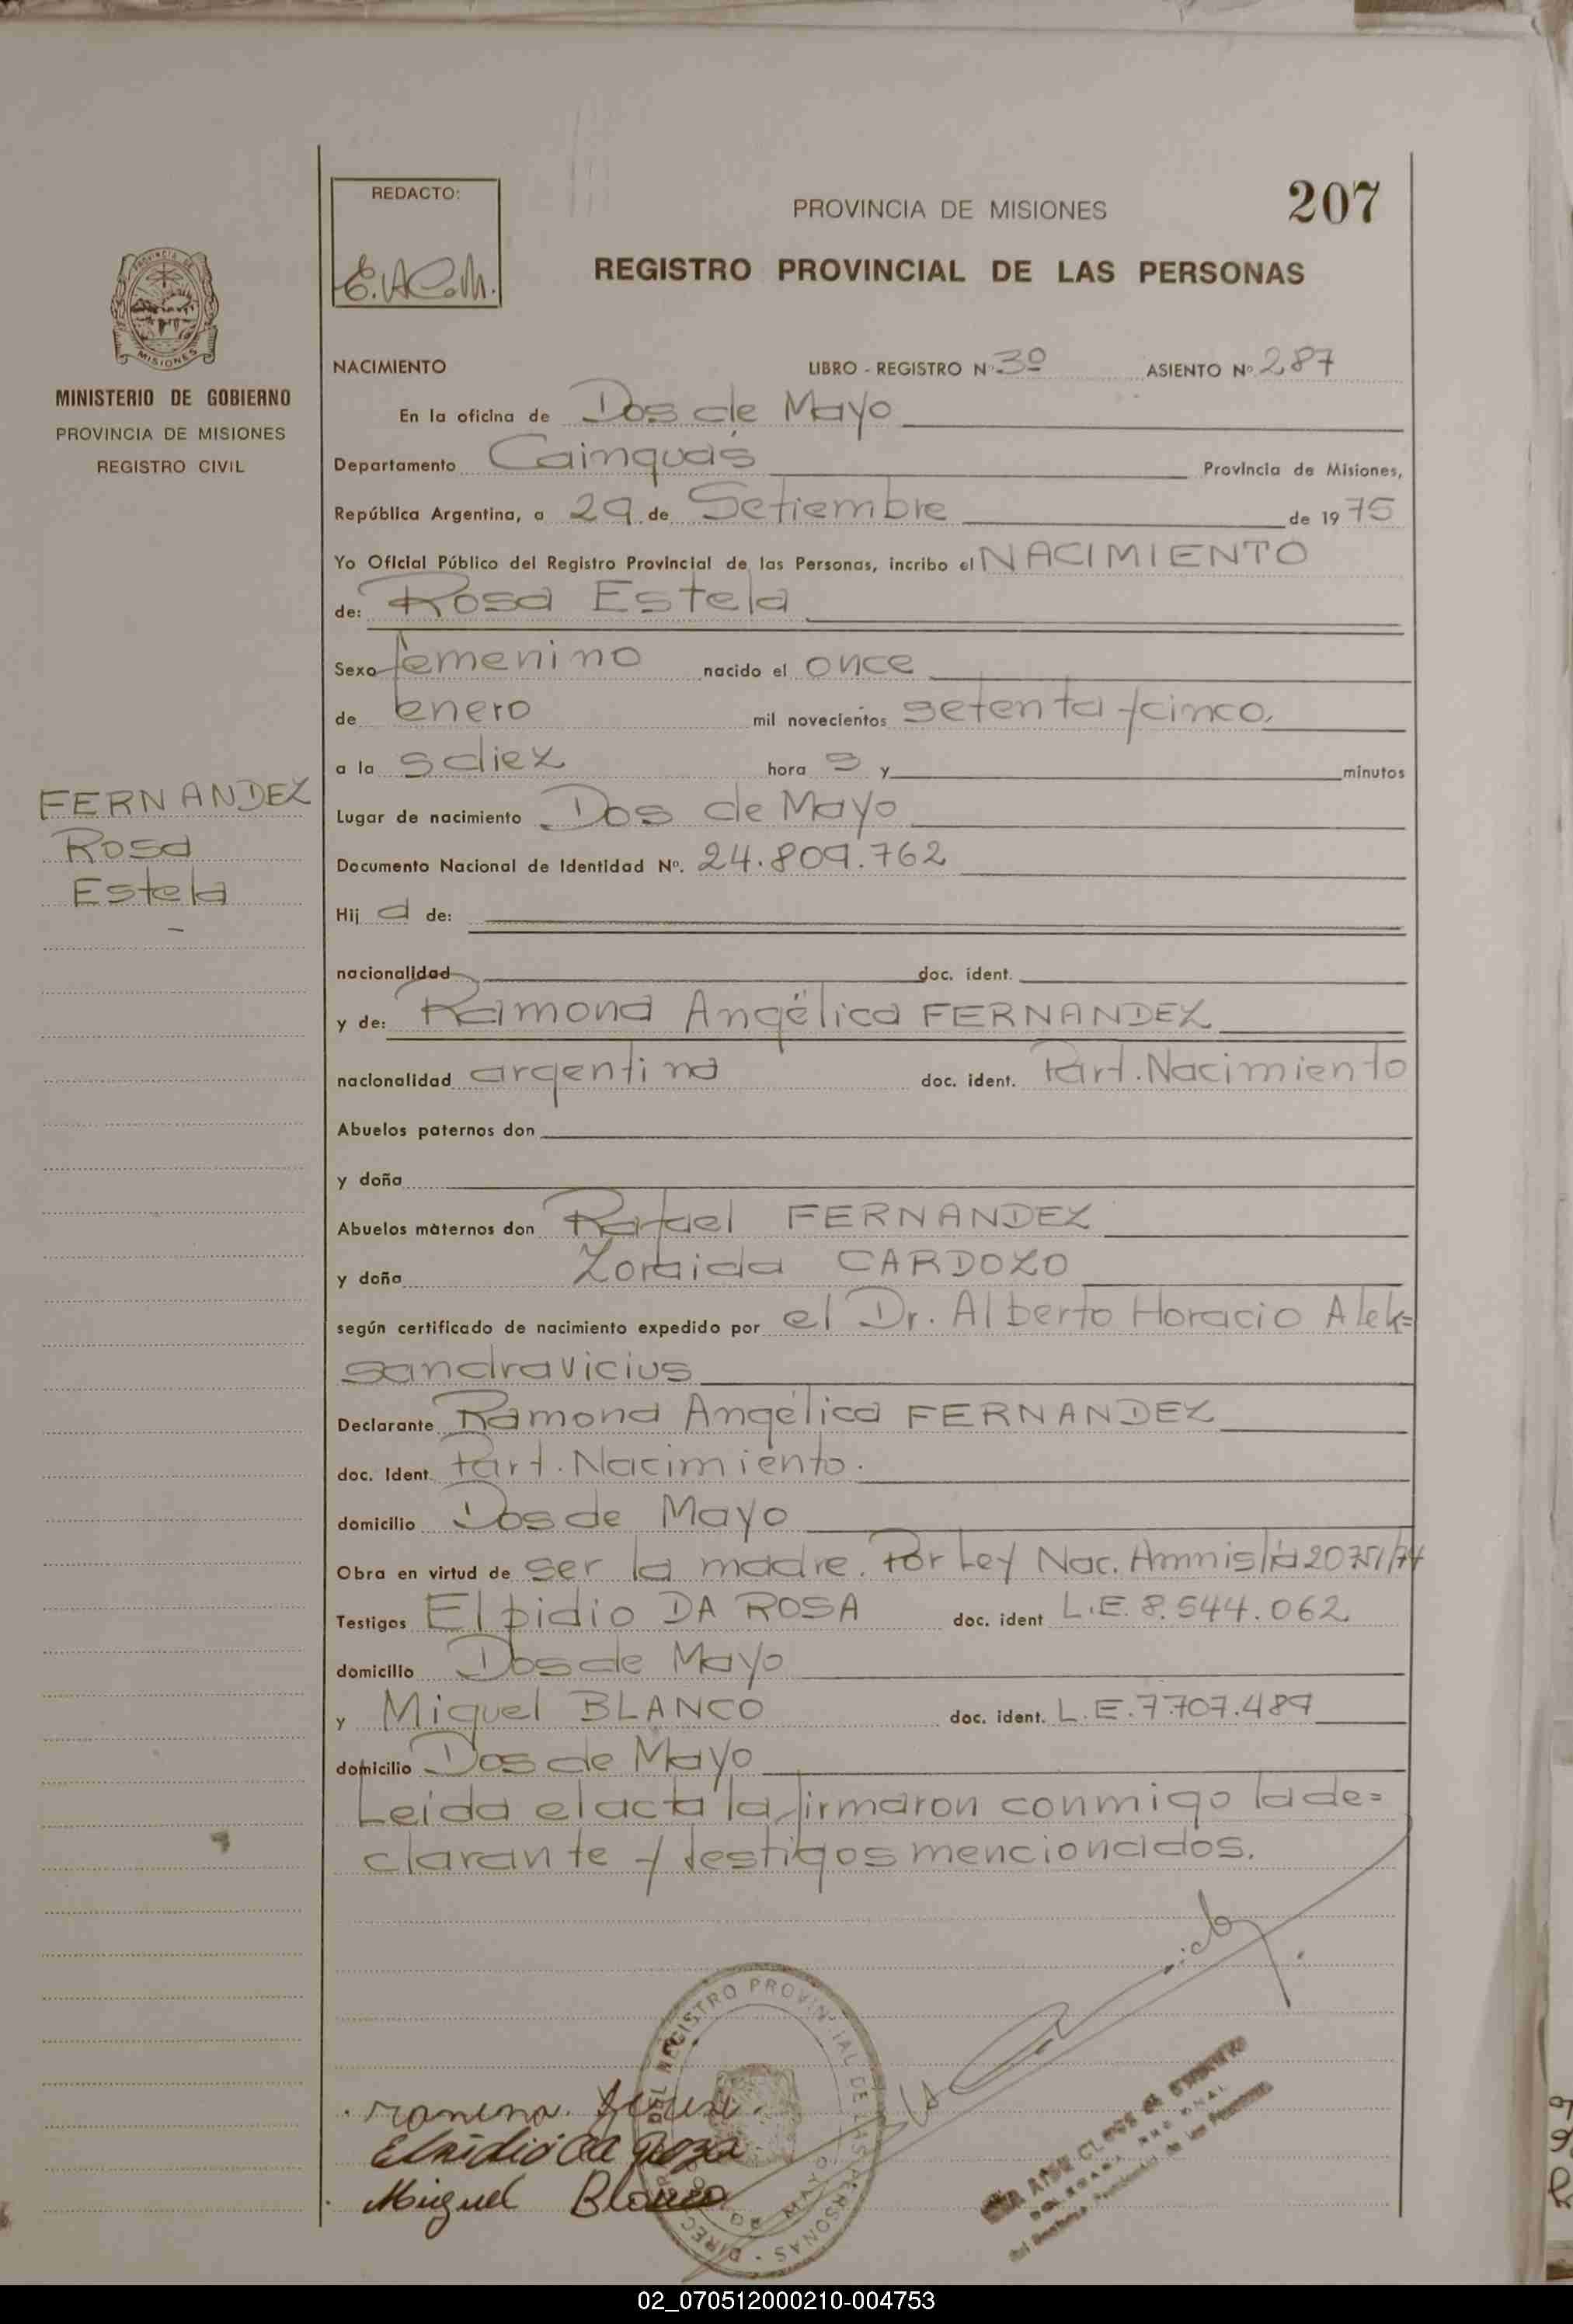 REDACTO:
E.A.C.M.
PROVINCIA DE MISIONES
207
REGISTRO PROVINCIAL DE LAS PERSONAS
PROVINCIA DE
MISIONES
MINISTERIO DE GOBIERNO
PROVINCIA DE MISIONES
REGISTRO CIVIL
NACIMIENTO LIBRO - REGISTRO Nº 3º ASIENTO Nº 287
En la oficina de Dos de Mayo
Departamento Cainguás Provincia de Misiones,
República Argentina, a 29 de Setiembre de 1975
Yo Oficial Público del Registro Provincial de las Personas, incribo el NACIMIENTO
de: Rosa Estela
Sexo femenino nacido el once
de enero mil novecientos setenta y cinco,
a la s diez hora s y minutos
FERNANDEZ
Rosa
Estela
Lugar de nacimiento Dos de Mayo
Documento Nacional de Identidad Nº. 24.809.762
Hij a de:
nacionalidad doc. ident.
y de: Ramona Angélica FERNANDEZ
nacionalidad argentina doc. ident. Part. Nacimiento
Abuelos paternos don
y doña
Abuelos maternos don Rafael FERNANDEZ
y doña Zoraida CARDOZO
según certificado de nacimiento expedido por el Dr. Alberto Horacio Alek=
sandravicius
Declarante Ramona Angélica FERNANDEZ
doc. Ident. Part. Nacimiento.
domicilio Dos de Mayo
Obra en virtud de ser la madre. Por Ley Nac. Amnistía 20751/74
Testigos Elpidio DA ROSA doc. ident L.E. 8.544.062
domicilio Dos de Mayo
y Miguel BLANCO doc. ident. L.E. 7.707.489
domicilio Dos de Mayo
Leída el acta la firmaron conmigo la de=
clarante y testigos mencionados.
DEL REGISTRO PROVINCIAL DE LAS PERSONAS
Miguel Blanco
02_070512000210-004753